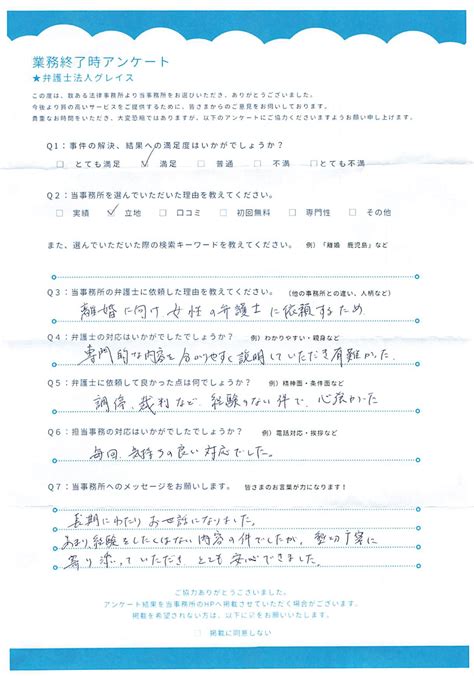 業務終了時アンケート
★弁護士法人グレイス
この度は、数ある法律事務所より当事務所をお選びいただき、ありがとうございました。
今後より質の高いサービスをご提供するために、皆さまからのご意見をお伺いしております。
貴重なお時間をいただき、大変恐縮ではありますが、以下のアンケートにご協力くださいますようお願い申し上げます。
Q1：事件の解決、結果への満足度はいかがでしょうか？
□ とても満足 ☑ 満足 □ 普通 □ 不満 □とても不満
Q2：当事務所を選んでいただいた理由を教えてください。
□ 実績 ☑ 立地 □ 口コミ □ 初回無料 □ 専門性 □ その他
また、選んでいただいた際の検索キーワードを教えてください。 例）「離婚 鹿児島」など
Q3：当事務所の弁護士に依頼した理由を教えてください。 （他の事務所との違い、人柄など）
離婚に向け女性の弁護士に依頼するため
Q4：弁護士の対応はいかがでしたでしょうか？ 例）わかりやすい・親身など
専門的な内容を分かりやすく説明していただき有難かった。
Q5：弁護士に依頼して良かった点は何でしょうか？ 例）精神面・条件面など
調停、裁判など、経験のない件で、心強かった
Q6：担当事務の対応はいかがでしたでしょうか？ 例）電話対応・挨拶など
毎回、気持ちの良い対応でした。
Q7：当事務所へのメッセージをお願いします。 皆さまのお言葉が力になります！
長期にわたりお世話になりました。
あまり、経験をしたくはない内容の件でしたが、親切丁寧に
寄り添っていただき とても安心できました。
ご協力ありがとうございました。
アンケート結果を当事務所のHPへ掲載させていただく場合がございます。
掲載を希望されない方は、以下に☑をお願いいたします。
□ 掲載に同意しない